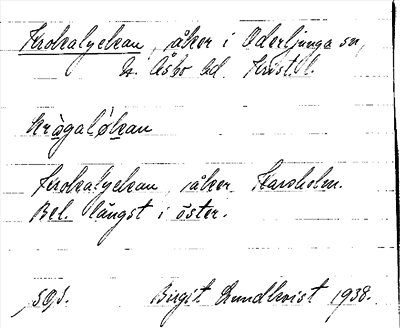 Krokalyckan, åker i Oderljunga sn,
N. Åsbo hd. Krist. l.
kràgalỳkan
Krokalyckan, åker Karsholm.
Bel. längst i öster.
SOJ. Birgit Lundkvist 1938.